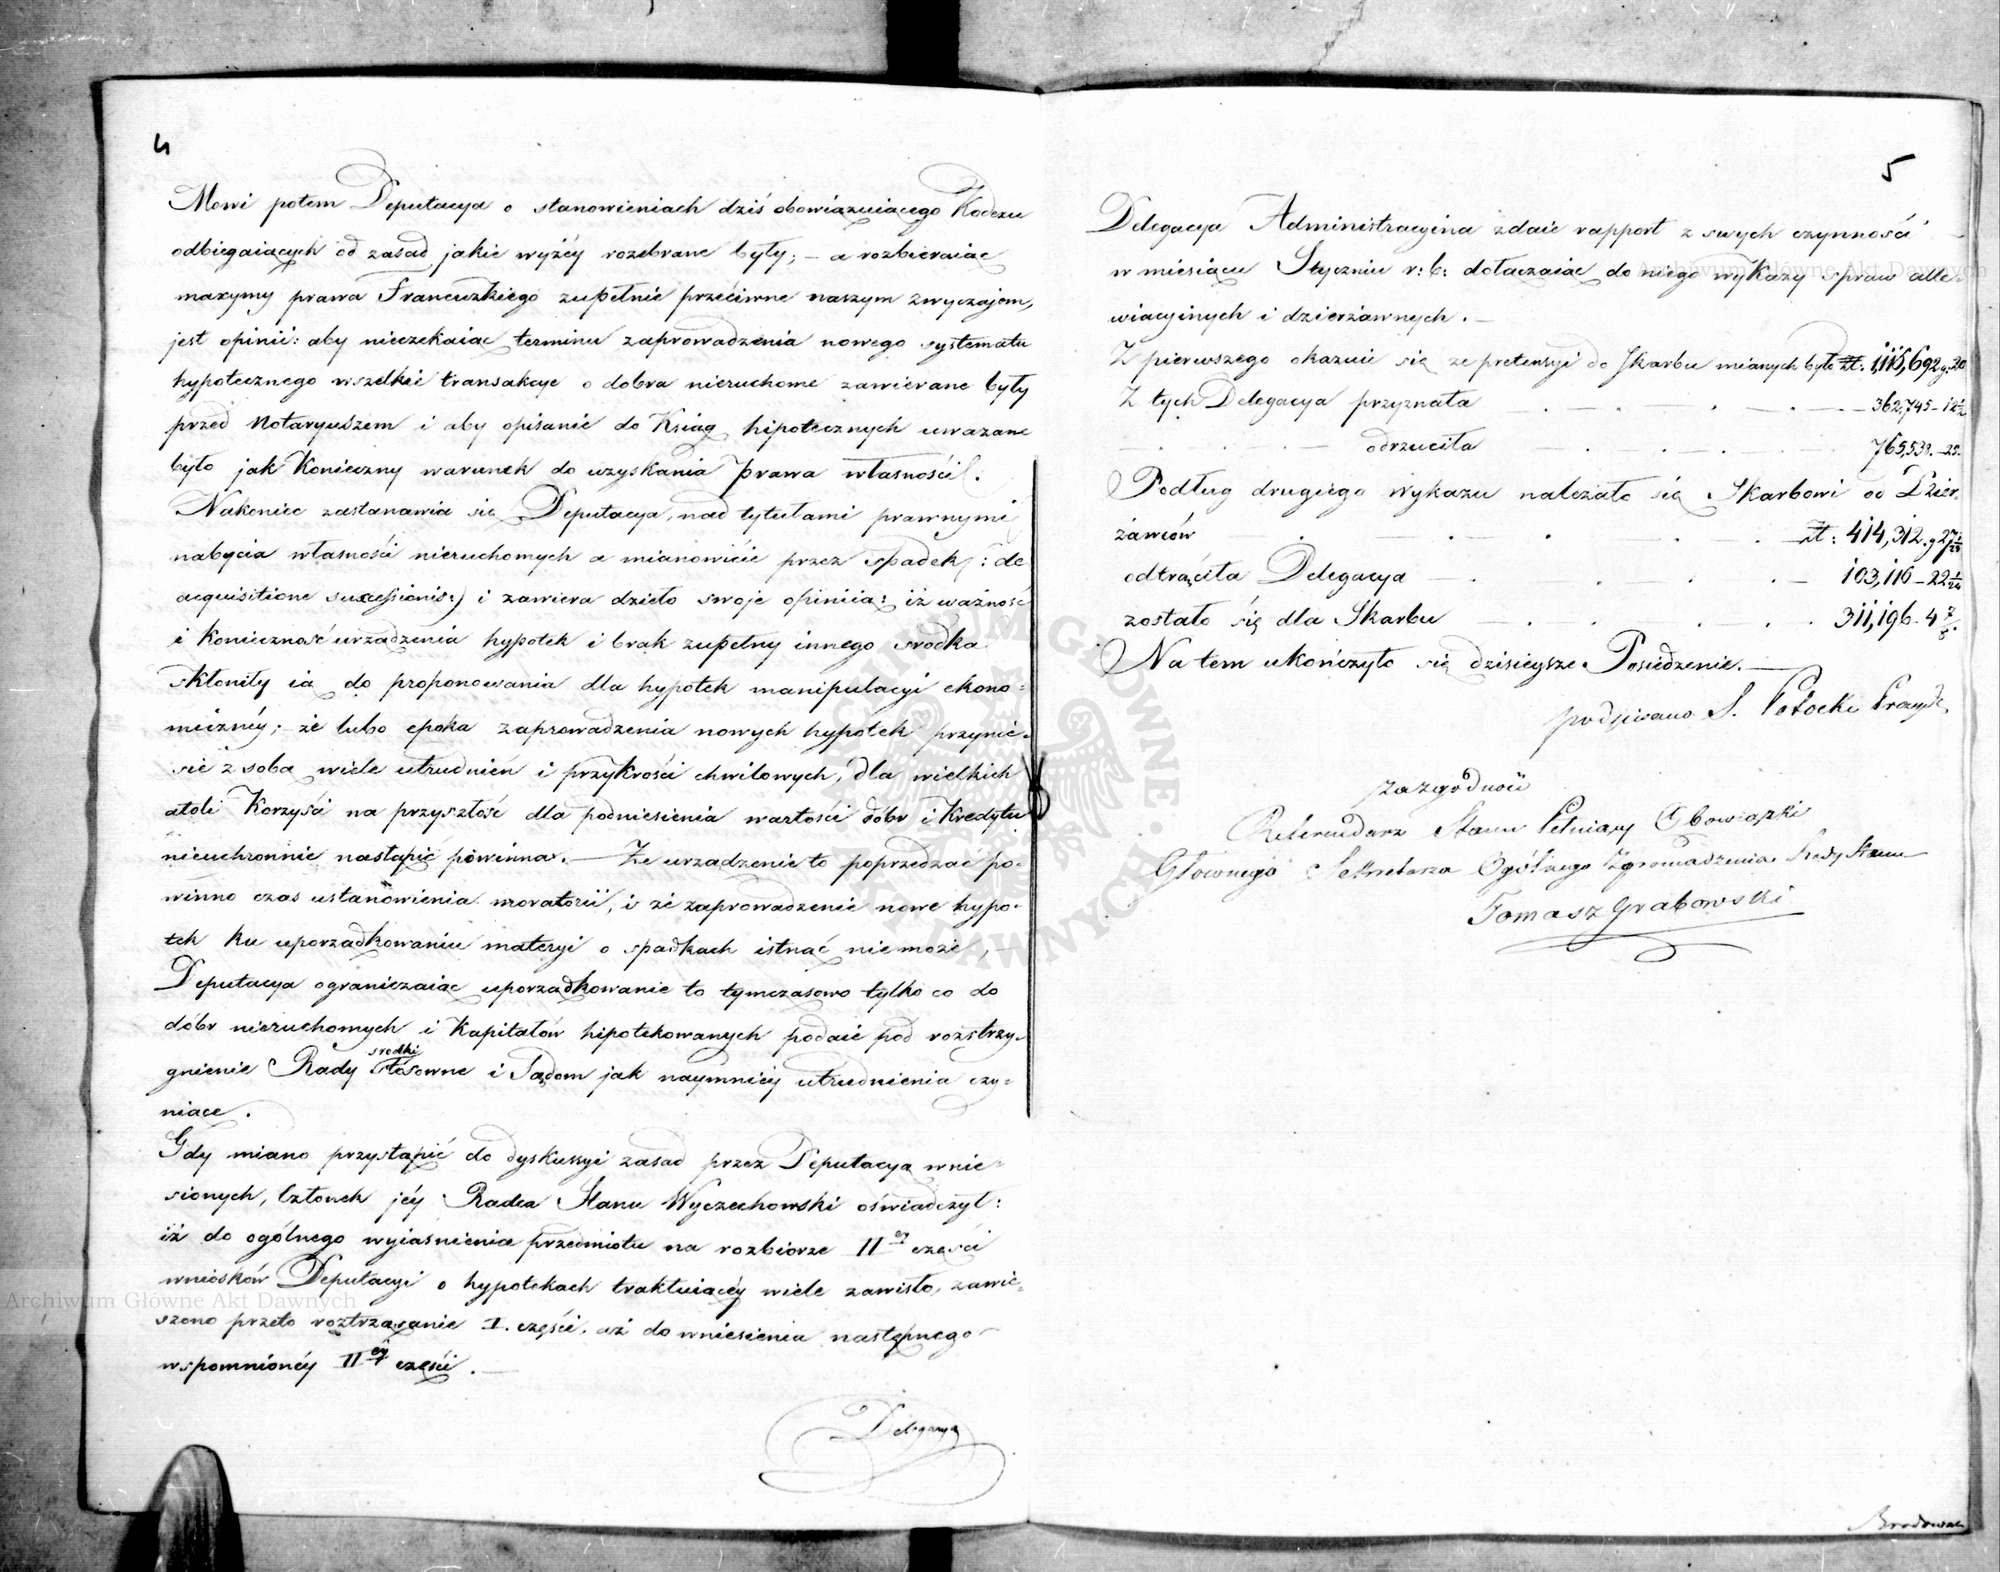 4
Mowi potem Deputacya o stanowieniach dziś obowiązuiącego Kodexu
odbiegaiących od zasad jakie wyżéy rozebrane były; – a rozbieraiąc
maxymy prawa Francuzkiego zupełnie przeciwne naszym zwyczajom,
jest opinii: aby nieczekaiąc terminu zaprowadzenia nowego systematu
hypotecznego wszelkie transakcye o dobra nieruchome zawierane były
przed Notaryuszem i aby opisanie do Ksiąg hipotecznych uważane
było jak Konieczny warunek do uzyskania prawa własności.
Nakoniec zastanawia się Deputacya, nad tytułami prawnymi
nabycia własności nieruchomych a mianowicie przez spadek (: de
acquisitione successionis:) i zawiera dzieło swoje opiniią: iż ważność
i Konieczność urządzenia hypotek i brak zupełny innego srodka
skłoniły ią do proponowania dla hypotek manipulacyi ekono=
miczney; – że lubo epoka zaprowadzenia nowych hypotek przynie=
sie z sobą wiele utrudnień i przykrości chwilowych, dla wielkich
atoli Korzyści na przyszłość dla podniesienia wartości dóbr i Kredytu
nieuchronnie nastąpić powinna. – Że urządzenie to poprzedzać po=
winno czas ustanowienia moratorii, i że zaprowadzenie nowe hypo=
tek ku uporządkowaniu materyi o spadkach istnąć niemoże, –
Deputacya ograniczaiąc uporządkowanie to tymczasowo tylko co do
dóbr nieruchomych i Kapitałów hipotekowanych podaie pod rozstrzy=
gnienie Rady srodki stosowne i Sądom jak naymniéy utrudnienia czy=
niące.
Gdy miano przystąpić do dyskussyi zasad przez Deputacyą wnie=
sionych, Członek jéy Radca Stanu Wyczechowski oświadczył:
iż do ogólnego wyiasnienia przedmiotu na rozbiorze IIéy częsci
wniosków Deputacyi o hypotekach traktuiącéy wiele zawisło, zawie=
szono przeto roztrząsanie I. częśći. aż do wniesienia następnego
wspomnionéy IIéy częśći. –
Delegacya
5
Delegacya Administracyina zdaie rapport z swych czynnośći
w miesiącu Styczniu r: b: dołączaiąc do niego wykazy spraw alle=
wiacyinych i dzierżawnych. –
Z pierwszego okazuie się że pretensyi do Skarbu mianych było zł: 1,115,692 g: 20
Z tych Delegacya przyznała . – . – . – 362,745 – 12½
. . – odrzuciła – . – . – . – 765,538. – 25.
Podług drugiego wykazu należało się Skarbowi od Dzier=
żawców . – . – . – . – zł: 414,312. g 27
odtrąciła Delegacya – . . . . – 103,116 – 22
zostało się dla Skarbu – . . . . 311,196. 4
Na tem ukończyło się dzisieysze Posiedzenie. –
podpisano S. Potocki Prezyd:
za zgodność
Referendarz Stanu Pełniący Obowiązki
Głownego Sekretarza Ogólnego Zgromadzenia Rady Stanu
Tomasz Grabowski
Archiwum Główne Akt Dawnych
Archiwum Główne Akt Dawnych
ARCHIWUM GŁÓWNE AKT DAWNYCH